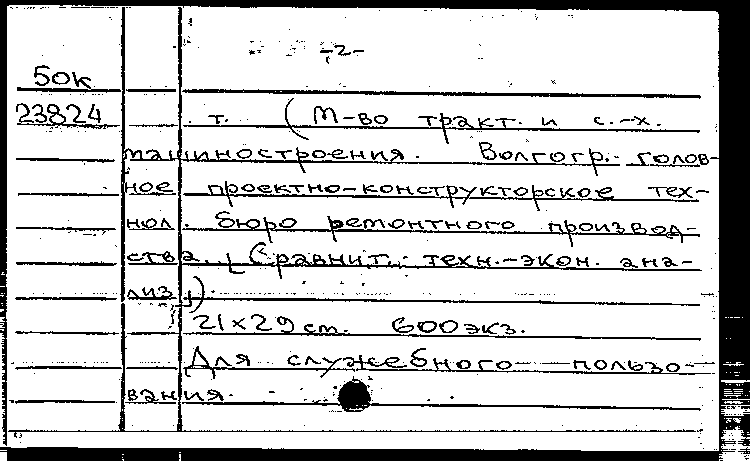 -2-
50к
23824 т. (М-во тракт. и с.-х.
машиностроения. Волгогр. голов-
ное проектно-конструкторское тех-
нол. бюро ремонтного производ-
ства. [Сравнит. техн.-экон. ана-
лиз]).
21×29 cm. 600 экз.
Для служебного пользо-
вания.